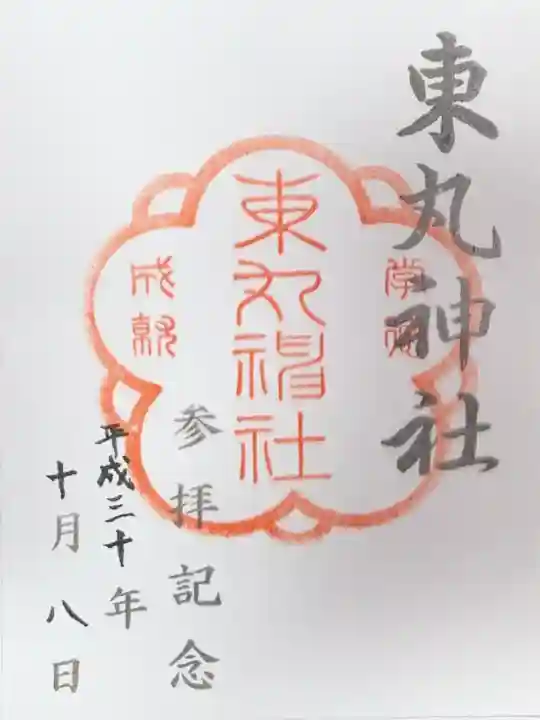 東丸神社
学問
東丸神社
成就
参拝記念
平成三十年
十月八日